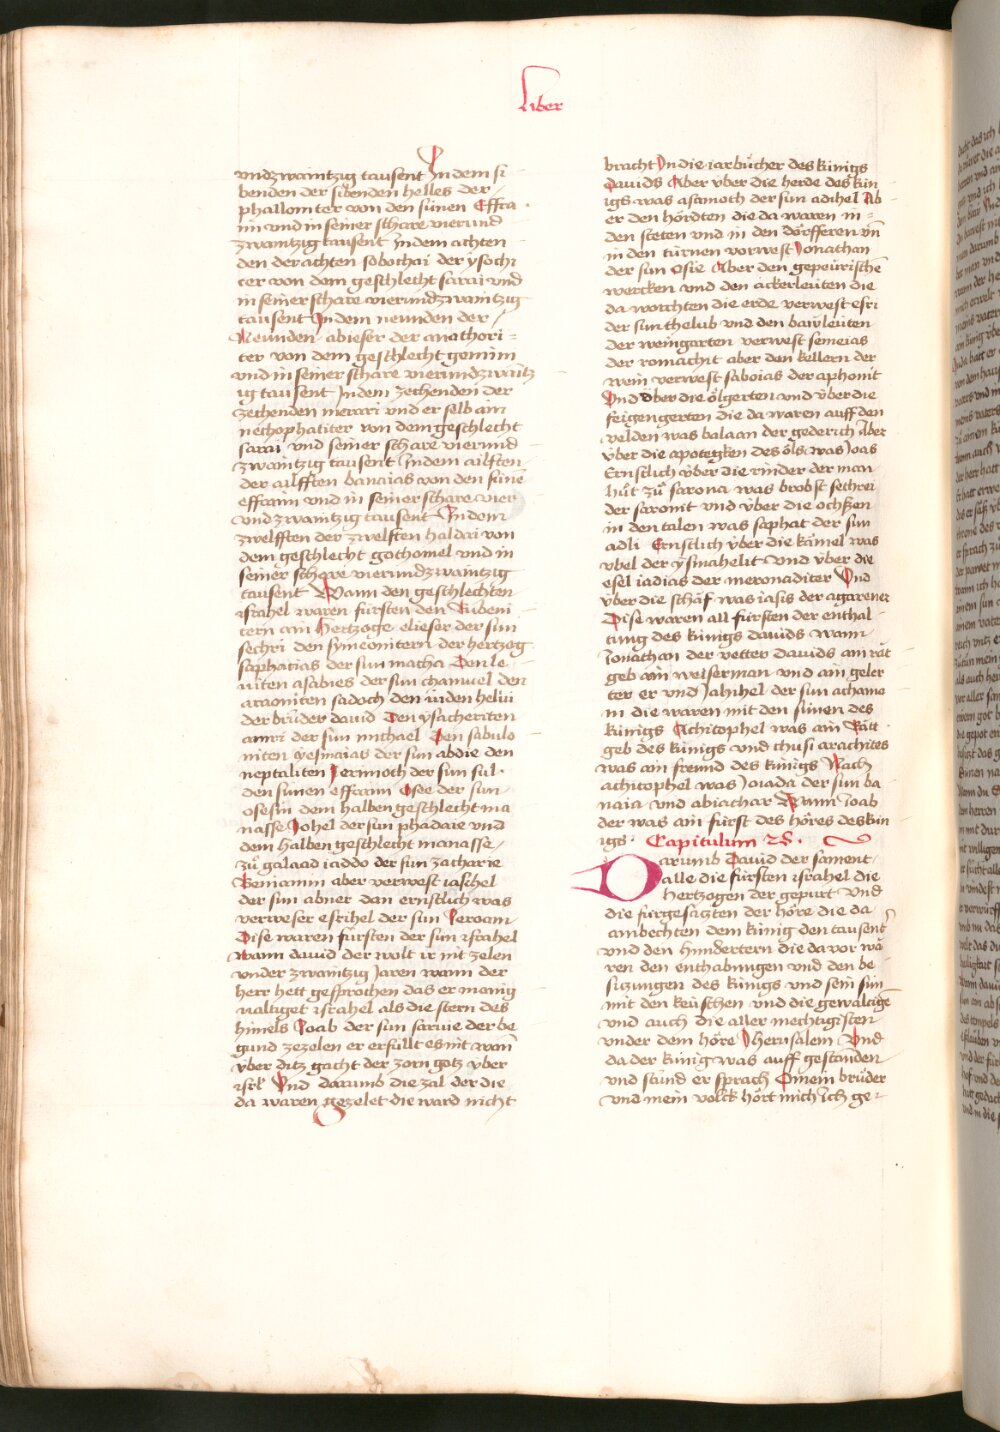 Liber
vndzwaintzig tausent Jn dem si
benden der sibenden helles der
phalloniter von den sünen Effra
im vnd in seiner schare vierund
zwaintzig tausent Jn dem achten
den der achten sobochai der ysochi
ter von dem geschlecht sarai vnd
in seiner schare vierundzwaintzig
tausent Jn dem neunden der
Neunden abieser der anathori
ter von dem geschlecht gemini
vnd in seiner schare vierundzwaītz
ig tausent Jn dem zechenden der
zechenden merari vnd er selb ain
nechophatiter von dem geschlecht
sarai vnd seiner schare vierund
zwaintzig tausent Jn dem ailften
der ailfften banaias von den sünē
effraim vnd in seiner schare vier
vnd zwaintzig tausent Jn dem
zwelfften der zwelften haldai von
dem geschlecht gothomel vnd in
seiner schare vierundzwaintzig
tausent Wann den geschlechten
israhel waren fürsten den Rubeni
tern ain Hertzoge elieser der sun
sechri den symeonitern der hertzog
saphatias der sun macha Den le
uiten asabies der sun chamuel den
araoniten sadoch den iuden heliu
der brüder dauid Den ysachériten
amri der sun michael Den sabulo
niten yesmaias der sun abdie den
neptaliten Jerimoch der sun sul
den sunen effraim Osee der sun
osesin dem halben geschlecht ma
nasse Johel der sun phadaie vnd
dem halben geschlecht manasse
zů galaad iaddo der sun zacharie
Beniamin aber verwest iaschel
der sun abner dan ernstlich was
verweser esrihel der sun Jeroam
Dise waren fürsten der sün israhel
wann dauid der wolt ir nit zelen
vnder zwaintzig Jaren wann der
herr hett gesprochen das er manig
ualtiget israhel als die stern des
himels Joab der sun saruie der be
gund zezelen er erfüllt es nit wan̄
vber ditz gacht der zorn gotz vber
isrl̄ Vnd darumb die zal der die
da waren gezelet die ward nicht
bracht Jn die iarbücher des künigs
Dauids Aber vber die herde des kün
igs was asamoth der sun adihel Ab
er den hördten die da waren in
den steten vnd in den dörfferen vn̄
in den türnen vorwest Jonathan
der sun Osie Aber den gepeurischē
wercken vnd den ackerleuten die
da worchten die erde verwest esri
der sun thelub vnd den bauleuten
der weingarten verwest semeias
der romachit aber den kellern der
wein verwest saboias der aphonit
Vnd vber die ölgerten vnd vber die
feigengerten die da waren auff den
velden was balaan der gederich Aber
vber die apotegken des öls was Joas
Ernstlich vber die rinder der man
hůt zů sarona was brobst sethrei
der saronit vnd vber die ochssen
in den talen was saphat der sun
adli Ernstlich vber die kämel was
vbel der ysmahelit vnd vber die
esel iadias der meronaditer Vnd
vber die schäf was iasis der agarener
Dise waren all fürsten der enthal
tung des künigs dauids wann
Jonathan der vetter dauids ain rät
geb ain weiserman vnd ain geler
ter er vnd Jahihel der sun achamo
ni die waren mit den sünen des
künigs Achitophel was ain Rätt
geb des künigs vnd chusi arachites
was ain freund des künigs Nach
achitophel was Joiada der sun ba
naia vnd abiachar Wann Joab
der was ain fürst des höres des kün
igs Capitulum 28.
Darumb Dauid der sament
alle die fürsten israhel die
hertzogen der gepurt vnd
die fürgesatzten der höre die da
ambechten dem künig den tausent
vnd den hundertern die da vor wa
ren den enthabungen vnd den be
sitzungen des künigs vnd sein sün
mit den keüschen vnd die gewaltigē
vnd auch die aller mechtigisten
vnder dem höre Jherusalem Vnd
da der künig was auff gestanden
vnd stůnd er sprach O mein brüder
vnd mein volck hört mich Jch ge